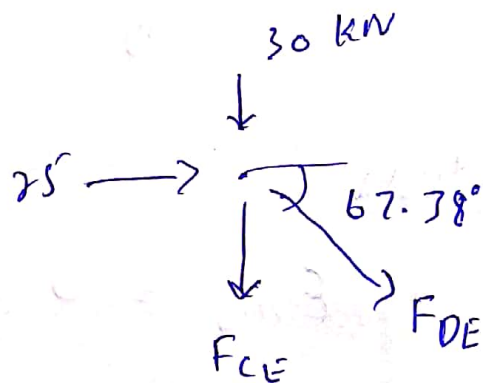 30 KN
25
67.38°
F_DE
F_CE